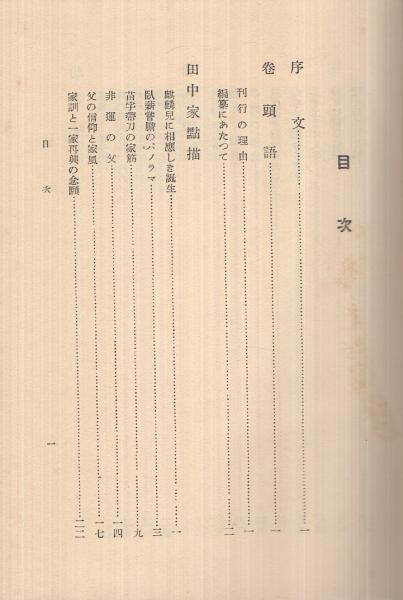 目次
序文…一
卷頭語…一
刊行の理由…一
編纂にあたつて…二
田中家點描
麒麟兒に相應しき誕生…一
臥薪嘗膽のパノラマ…三
苗字帶刀の家筋…九
非運の父…一四
父の信仰と家風…一七
家訓と一家再興の念願…二二
目次
一